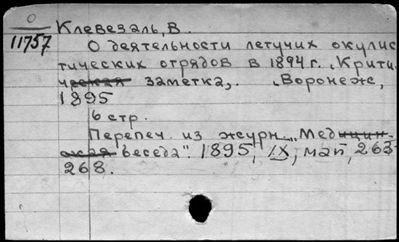 О
11757
Клевезаль, В.
О деятельности летучих окулис
тических отрядов в 1894 г. Крити
ческая заметка, Воронеж,
1895
6 стр.
Перепеч. из журн. "Медицин-
ская беседа". 1895, IX, май, 263-
268.